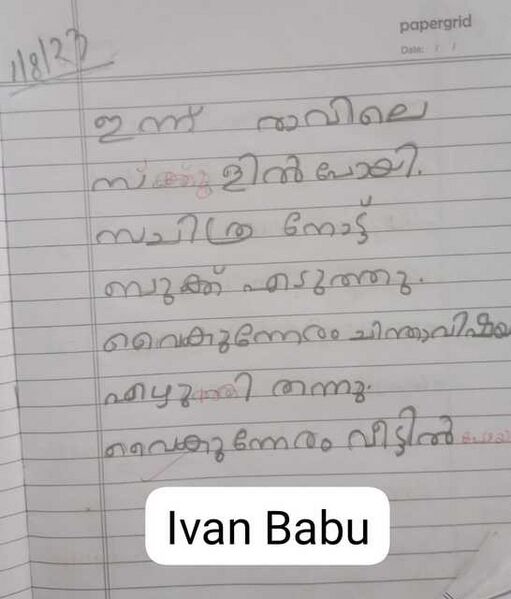 papergrid
Date: / /
1/8/23
ഇന്ന് രാവിലെ
സ്ക്കൂളിൽ പോയി.
സചിത്ര നോട്ട്
ബുക്ക് എടുത്തു.
വൈകുന്നേരം ചിന്താവിഷയ
എഴുതി തന്നു.
വൈകുന്നേരം വീട്ടിൽ
Ivan Babu